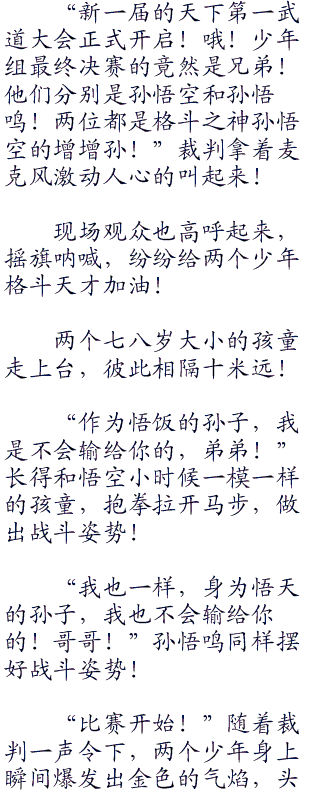 “新一届的天下第一武
道大会正式开启！哦！少年
组最终决赛的竟然是兄弟！
他们分别是孙悟空和孙悟
鸣！两位都是格斗之神孙悟
空的增增孙！”裁判拿着麦
克风激动人心的叫起来！
现场观众也高呼起来，
摇旗呐喊，纷纷给两个少年
格斗天才加油！
两个七八岁大小的孩童
走上台，彼此相隔十米远！
“作为悟饭的孙子，我
是不会输给你的，弟弟！”
长得和悟空小时候一模一样
的孩童，抱拳拉开马步，做
出战斗姿势！
“我也一样，身为悟天
的孙子，我也不会输给你
的！哥哥！”孙悟鸣同样摆
好战斗姿势！
“比赛开始！”随着裁
判一声令下，两个少年身上
瞬间爆发出金色的气焰，头